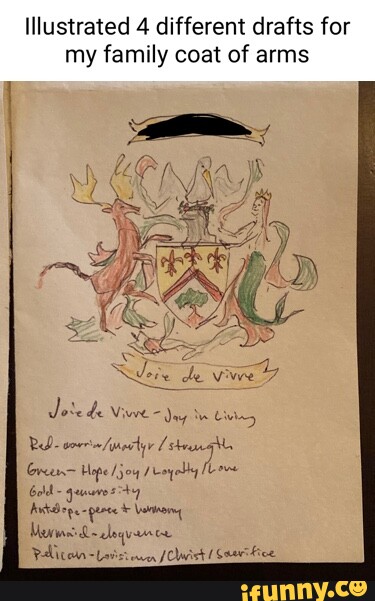 Illustrated 4 different drafts for
my family coat of arms
Joie de Vivre
Joie de Vivre - Joy in Living
Red - warrior/martyr / strength
Green - Hope/joy / Loyalty / Love
Gold - generosity
Antelope - peace + harmony
Mermaid - eloquence
Pelican - Louisiana / Christ / Sacrifice
ifunny.co